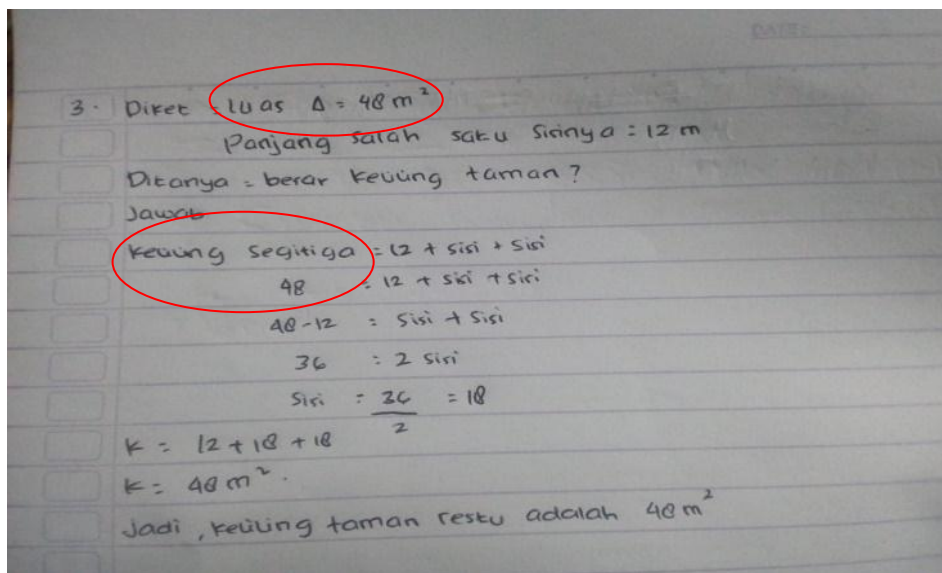 DATE:
3. Diket : Luas Δ = 48 m²
Panjang salah satu sisinya = 12 m
Ditanya = berar keliling taman?
Jawab
Keliling segitiga = 12 + sisi + sisi
48 = 12 + sisi + sisi
48-12 = sisi + sisi
36 = 2 sisi
Sisi = 36/2 = 18
K = 12 + 18 + 18
K = 48 m².
Jadi, keliling taman restu adalah 48 m²